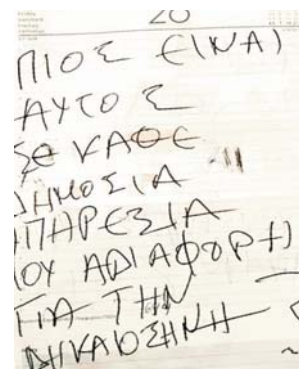 20
ΠΙΟΣ ΕΙΝΑΙ
ΑΥΤΟΣ
ΣΕ ΚΑΘΕ
ΔΗΜΟΣΙΑ
ΗΠΗΡΕΣΙΑ
ΠΟΥ ΑΔΙΑΦΟΡΗ
ΓΙΑ ΤΗΝ
ΔΗΚΑΙΟΣΗΝΗ